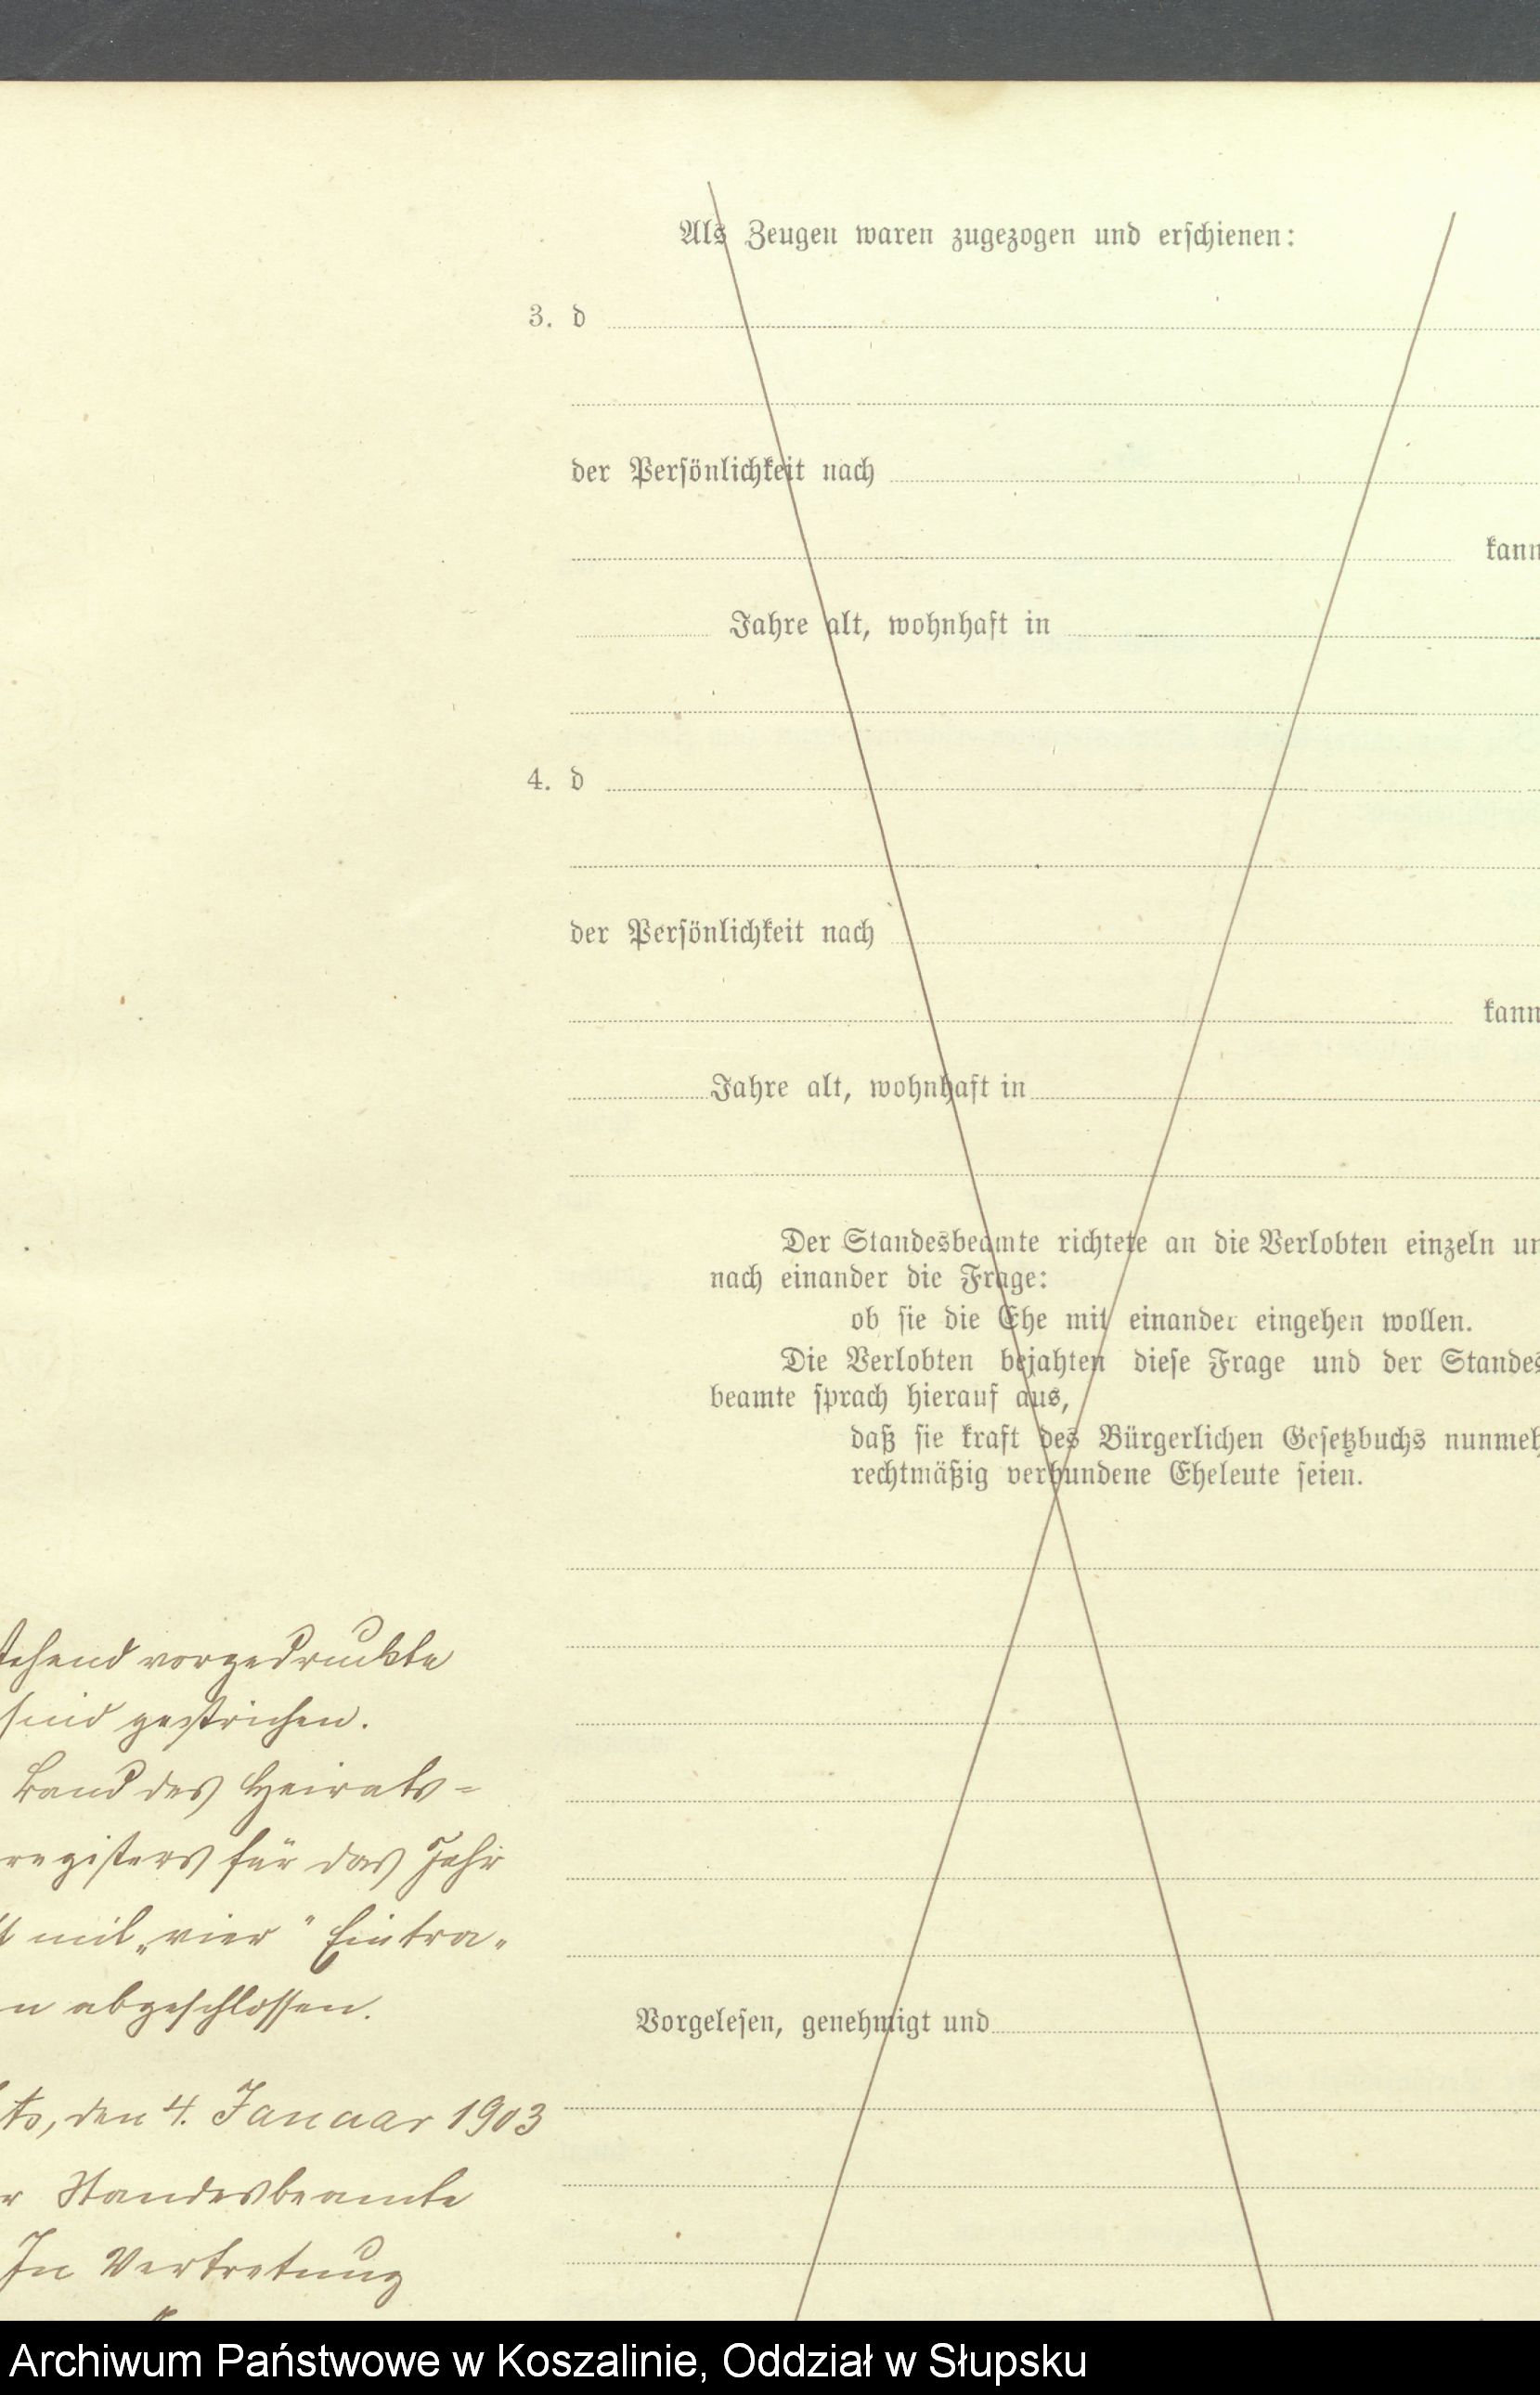 Als Zeugen waren zugezogen und erschienen:
3. d
der Persönlichkeit nach
kann
Jahre alt, wohnhaft in
4. d
der Persönlichkeit nach
kann
Jahre alt, wohnhaft in
Der Standesbeamte richtete an die Verlobten einzeln un
nach einander die Frage:
ob sie die Ehe mit einander eingehen wollen.
Die Verlobten bejahten diese Frage und der Standes
beamte sprach hierauf aus,
daß sie kraft des Bürgerlichen Gesetzbuchs nunmeh
rechtmäßig verbundene Eheleute seien.
Vorgelesen, genehmigt und
stehend vorgedruckte
sind gestrichen.
band des Heirats=
registers für das Jahr
mit „vier" Eintra-
n abgeschlossen.
ts, den 4. Januar 1903
r Standesbeamte
In Vertretung
Archiwum Państwowe w Koszalinie, Oddział w Słupsku